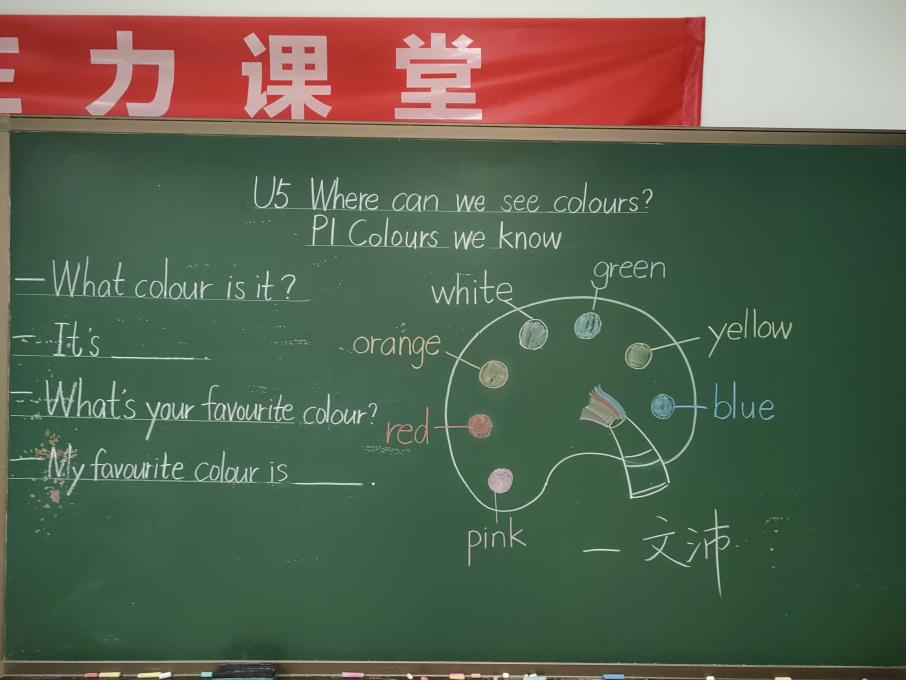 力课堂
U5 Where can we see colours?
P1 Colours we know
— What colour is it?
— It's ______.
— What's your favourite colour?
— My favourite colour is ______.
white
green
orange
yellow
red
blue
pink
— 文沛